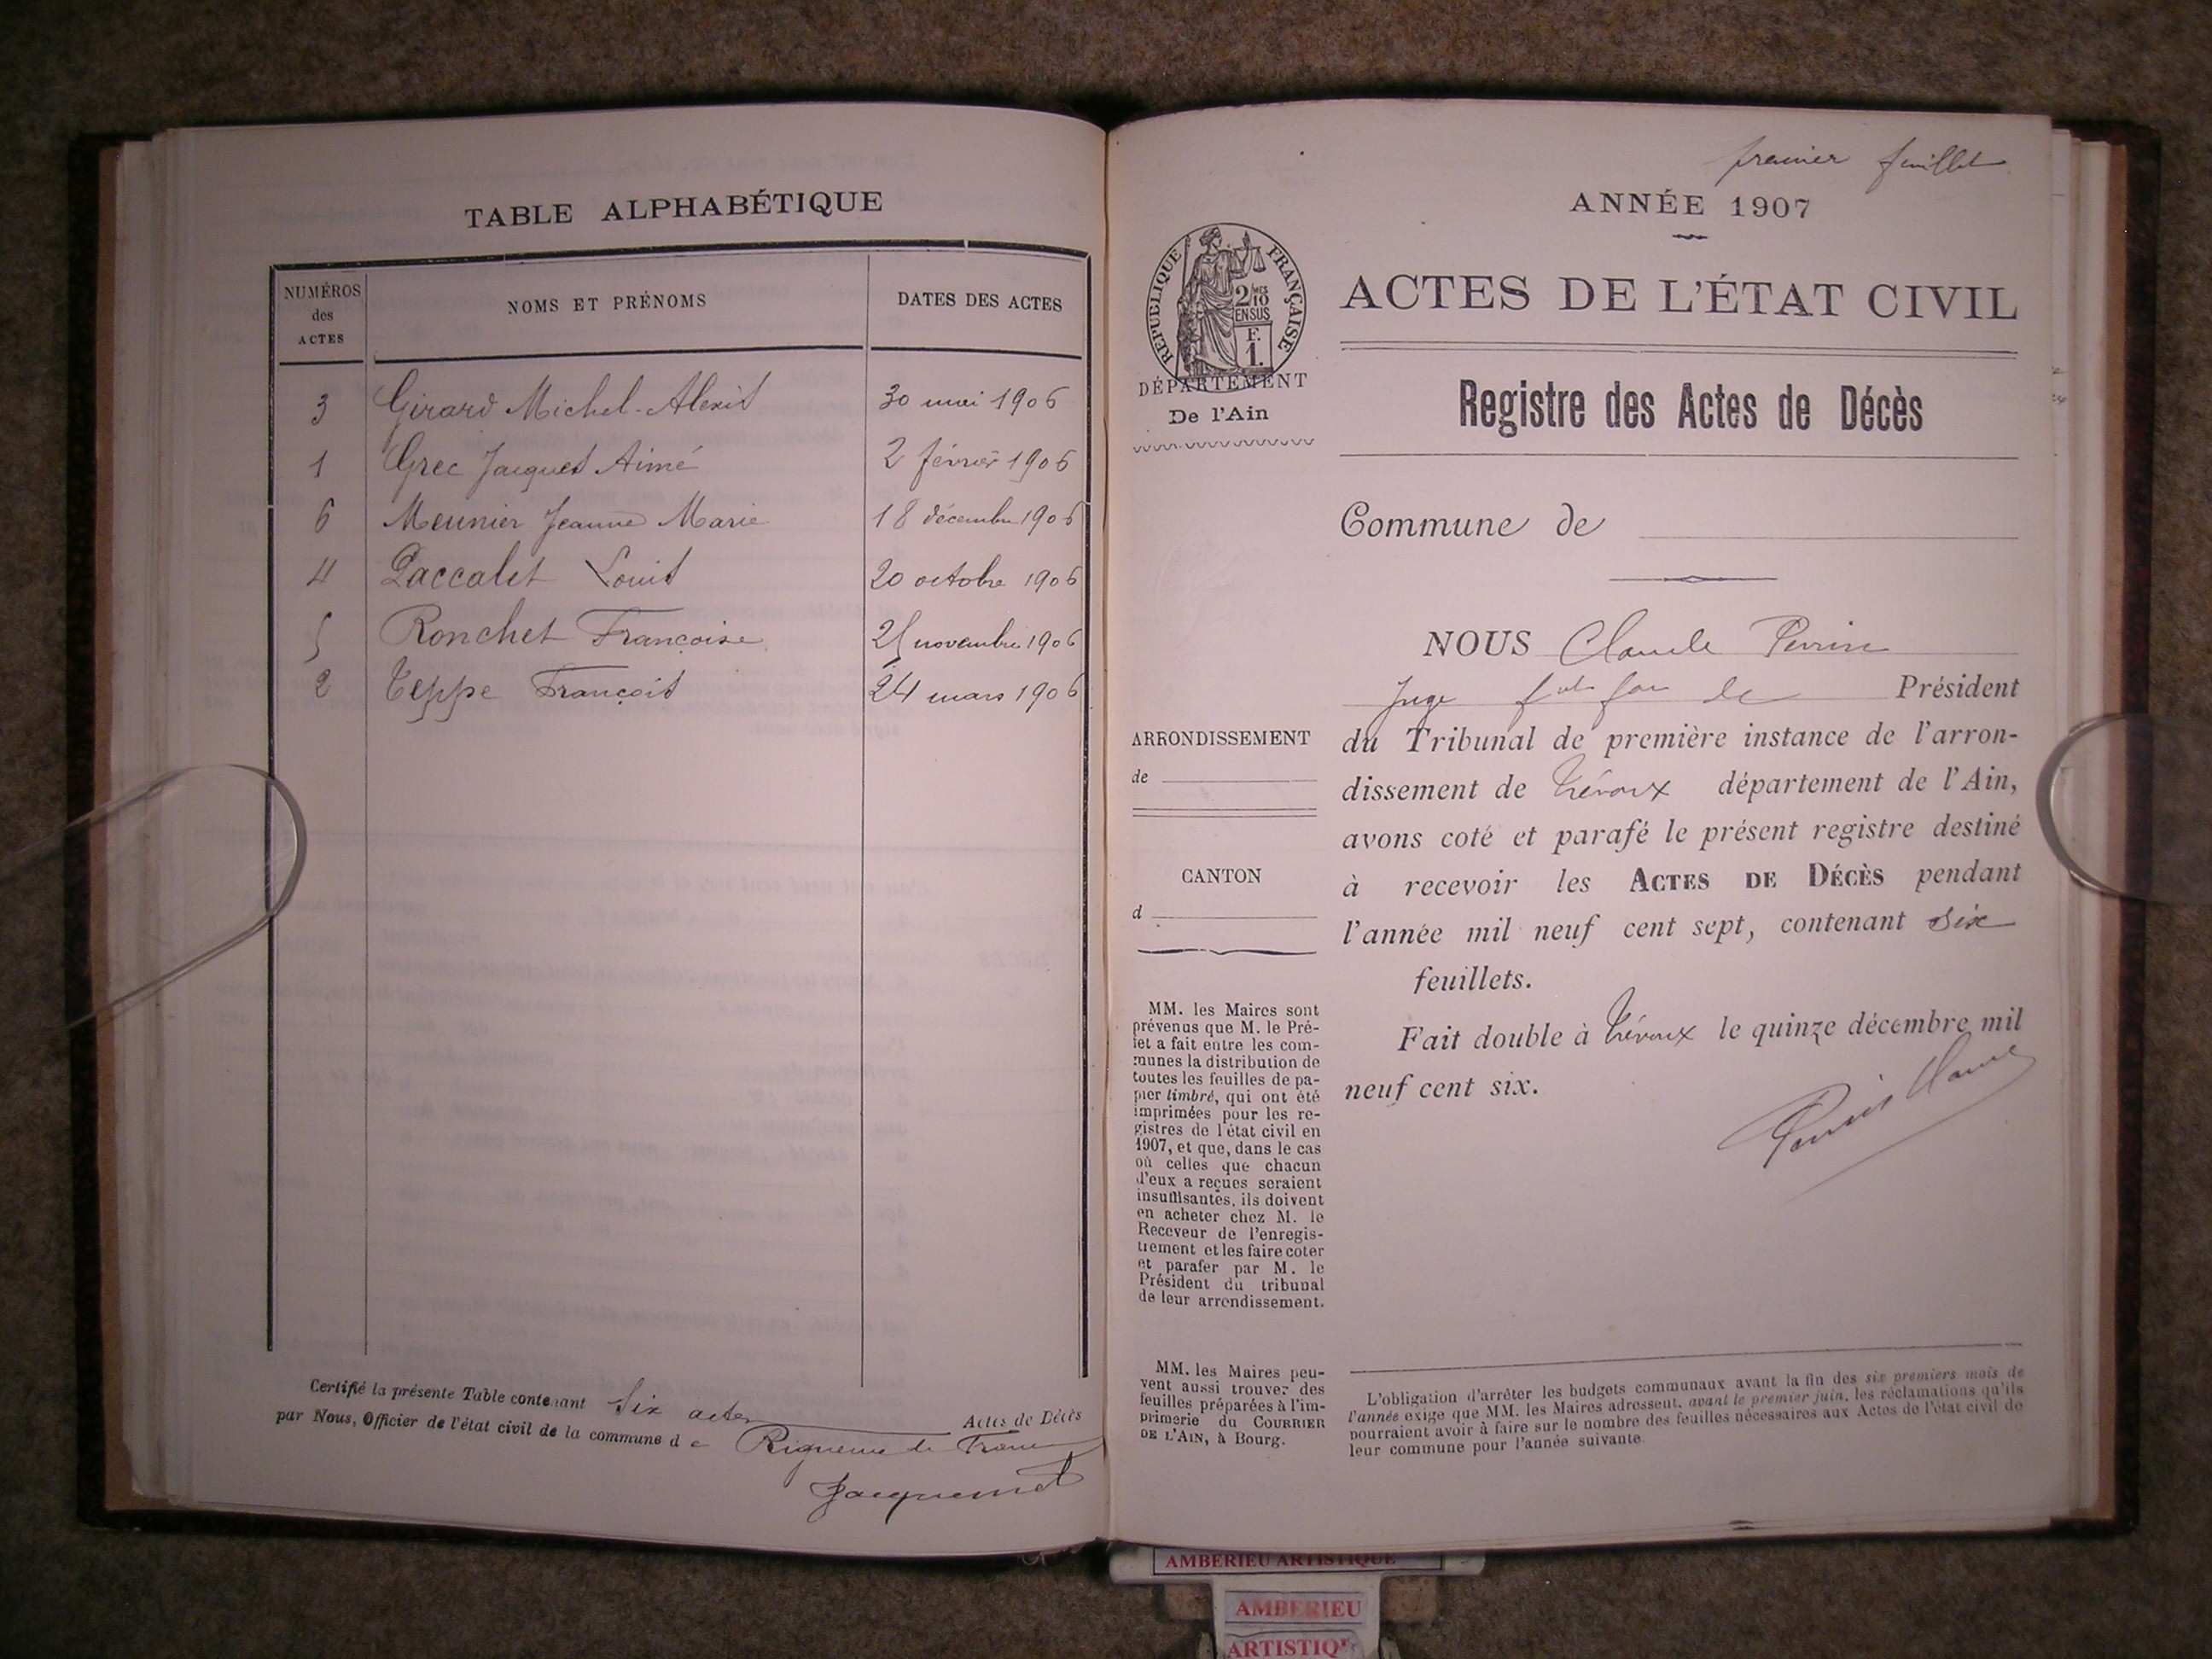 TABLE ALPHABÉTIQUE
NUMÉROS des ACTES
NOMS ET PRÉNOMS
DATES DES ACTES
3 Girard Michel-Alexis 30 mai 1906
1 Grec Jacques Aimé 2 février 1906
6 Meunier Jeanne Marie 18 décembre 1906
4 Paccalet Louis 20 octobre 1906
5 Ronchet Françoise 25 novembre 1906
2 Teppe François 24 mars 1906
Certifié la présente Table contenant Six actes Actes de Décès
par Nous, Officier de l'état civil de la commune de Rignieux le Franc
Jacquemet
premier feuillet
ANNÉE 1907
RÉPUBLIQUE FRANÇAISE
2/10
EN SUS
F.
1.
DÉPARTEMENT
De l'Ain
ACTES DE L'ÉTAT CIVIL
Registre des Actes de Décès
Commune de
NOUS Claude Perrin
Juge Président
du Tribunal de première instance de l'arron-
dissement de Trévoux département de l'Ain,
avons coté et parafé le présent registre destiné
à recevoir les ACTES DE DÉCÈS pendant
l'année mil neuf cent sept, contenant six
feuillets.
Fait double à Trévoux le quinze décembre mil
neuf cent six.
ARRONDISSEMENT
de
CANTON
d
MM. les Maires sont
prévenus que M. le Pré-
fet a fait entre les com-
munes la distribution de
toutes les feuilles de pa-
pier timbré, qui ont été
imprimées pour les re-
gistres de l'état civil en
1907, et que, dans le cas
où celles que chacun
d'eux a reçues seraient
insuffisantes, ils doivent
en acheter chez M. le
Receveur de l'enregis-
trement et les faire coter
et parafer par M. le
Président du tribunal
de leur arrondissement.
MM. les Maires peu-
vent aussi trouver des
feuilles préparées à l'im-
primerie du COURRIER
DE L'AIN, à Bourg.
L'obligation d'arrêter les budgets communaux avant la fin des six premiers mois de
l'année exige que MM. les Maires adressent, avant le premier juin, les réclamations qu'ils
pourraient avoir à faire sur le nombre des feuilles nécessaires aux Actes de l'état civil de
leur commune pour l'année suivante.
AMBERIEU ARTISTIQUE
AMBERIEU
ARTISTIQ